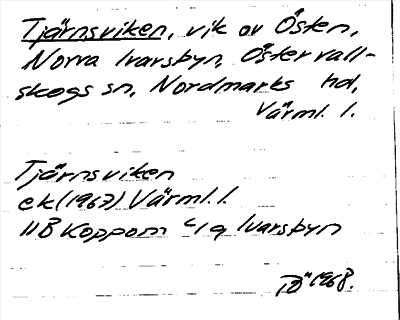 Tjärnsviken, vik av Östen,
Norra Ivarsbyn, Östervall-
skogs sn, Nordmarks hd,
Värml. l.
Tjärnsviken
ek (1967) Värml. l.
11B Koppom Ivarsbyn
1968.